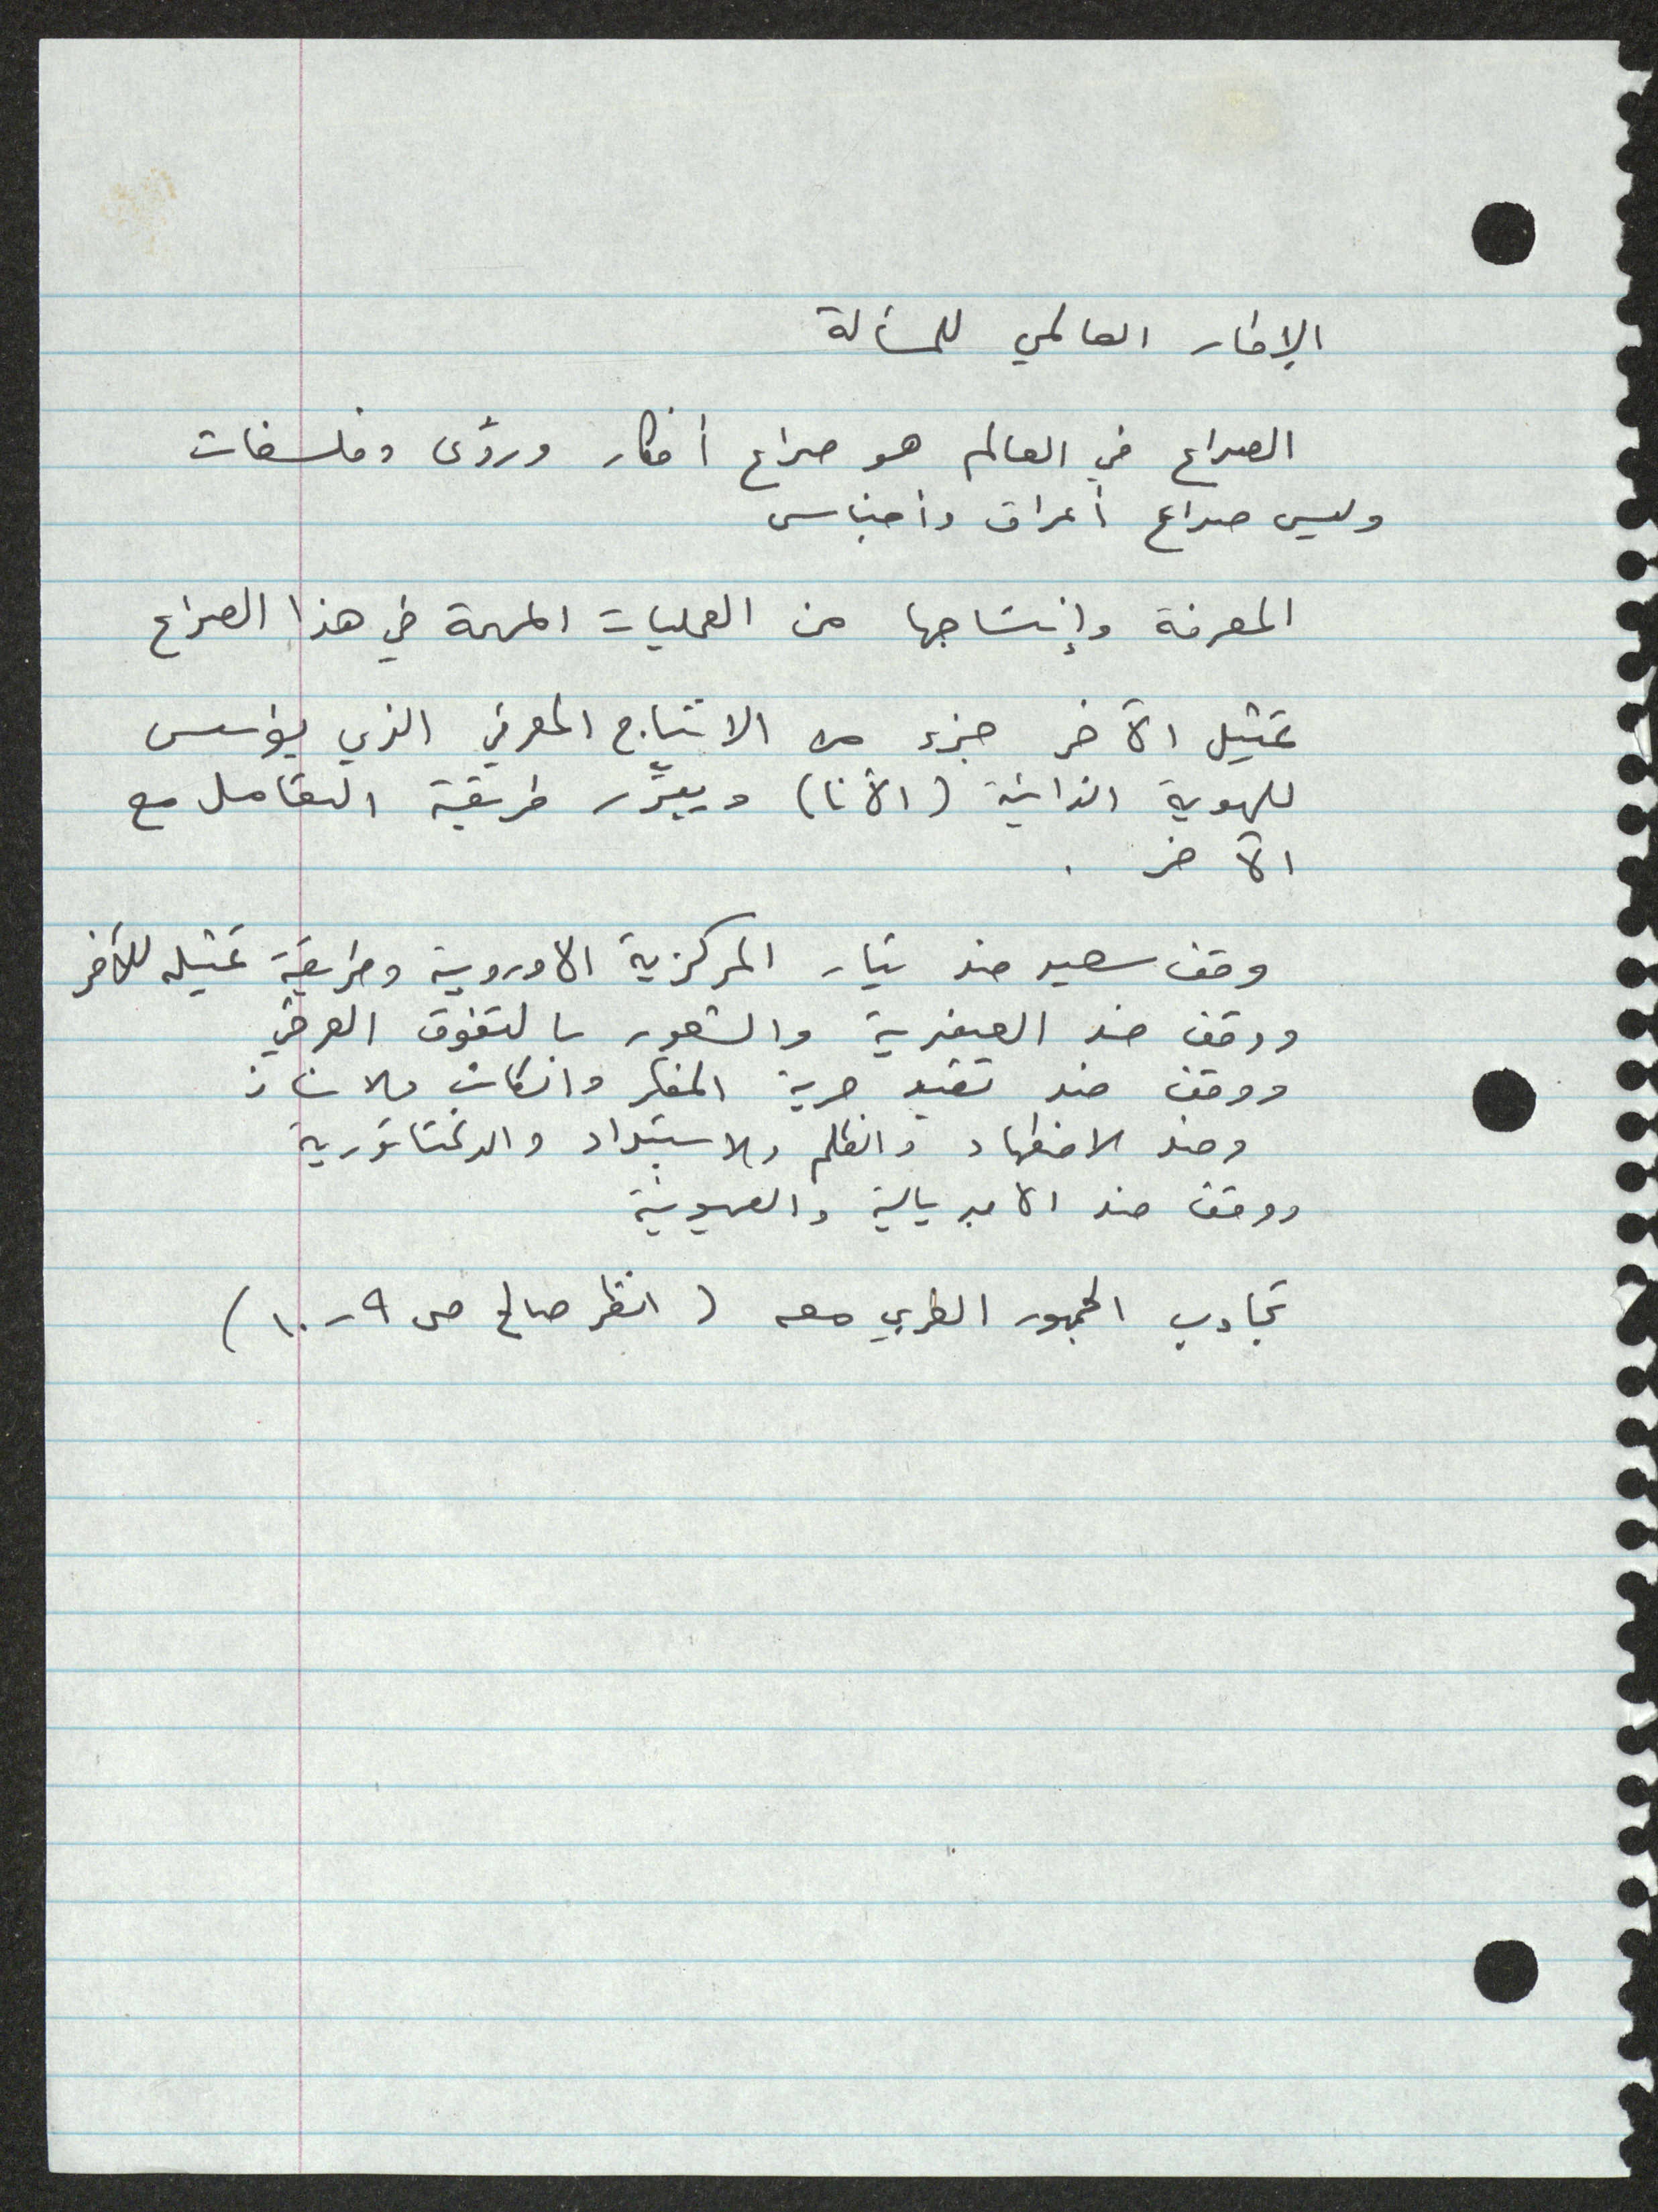 الإطار العالمي للمسألة
الصراع في العالم هو صراع أفكار ورؤى وفلسفات
وليس صراع أعراق وأجناس
المعرفة وإنتاجها من العمليات المهمة في هذا الصراع
تمثيل الآخر جزء من الانتاج المعرفي الذي يؤسس
للهوية الذاتية (الأنا) ويبرّر طريقة التعامل مع
الآخر .
وقف سعيد ضد تيار المركزية الاوروبية وطريقة تمثيله للآخر
ووقف ضد العنصرية والشعور بالتفوق العرقي
ووقف ضد تقييد حرية المفكر والكاتب والاستاذ
وضد الاضطهاد والظلم والاستبداد والدكتاتورية
ووقف ضد الامبريالية والصهيونية
تجاوب الجمهور الغربي معه ( انظر صالح ص ٩-١٠ )